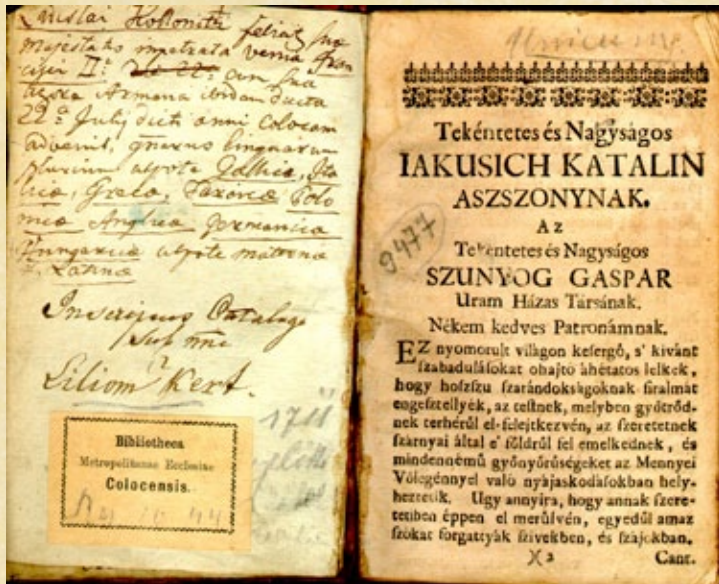 felicit sua
Majestatis impetrata venia Fran
cisci II.
cum sua
22ª Julij dicti anni Colocam
advenit, gnarus linguarum
plurium utpote Gallicæ, Ita
licæ, Græcæ, Polo
nicæ Anglicæ Germanicæ
Hungaricæ utpote maternæ
Latinæ
Inscripsimus Catalogo
sub
Liliom Kert.
1711
Bibliotheca
Metropolitanae Ecclesiae
Colocensis.
Unicum
Tekéntetes és Nagyságos
IAKUSICH KATALIN
ASZSZONYNAK.
Az
Tekéntetes és Nagyságos
SZUNYOG GASPAR
Uram Házas Társának.
Nékem kedves Patronámnak.
9477
EZ nyomorult világon kesergő, s' kivánt
szabadulásokat ohajtó áhétatos lelkek,
hogy hoszszu szarándokságoknak siralmát
engesztellyék, az testnek, melyben gyötrőd-
nek terhéről el-felejtkezvén, az szeretetnek
szárnyai által e' földről fel emelkednek, és
mindennémű gyönyörűségeket az Mennyei
Vőlegénnyel való nyájaskodásokban hely-
heztetik. Ugy annyira, hogy annak szere-
tetiben éppen el merülvén, egyedűl amaz
szókat forgattyák szivekben, és szájokban.
X2 Cant.